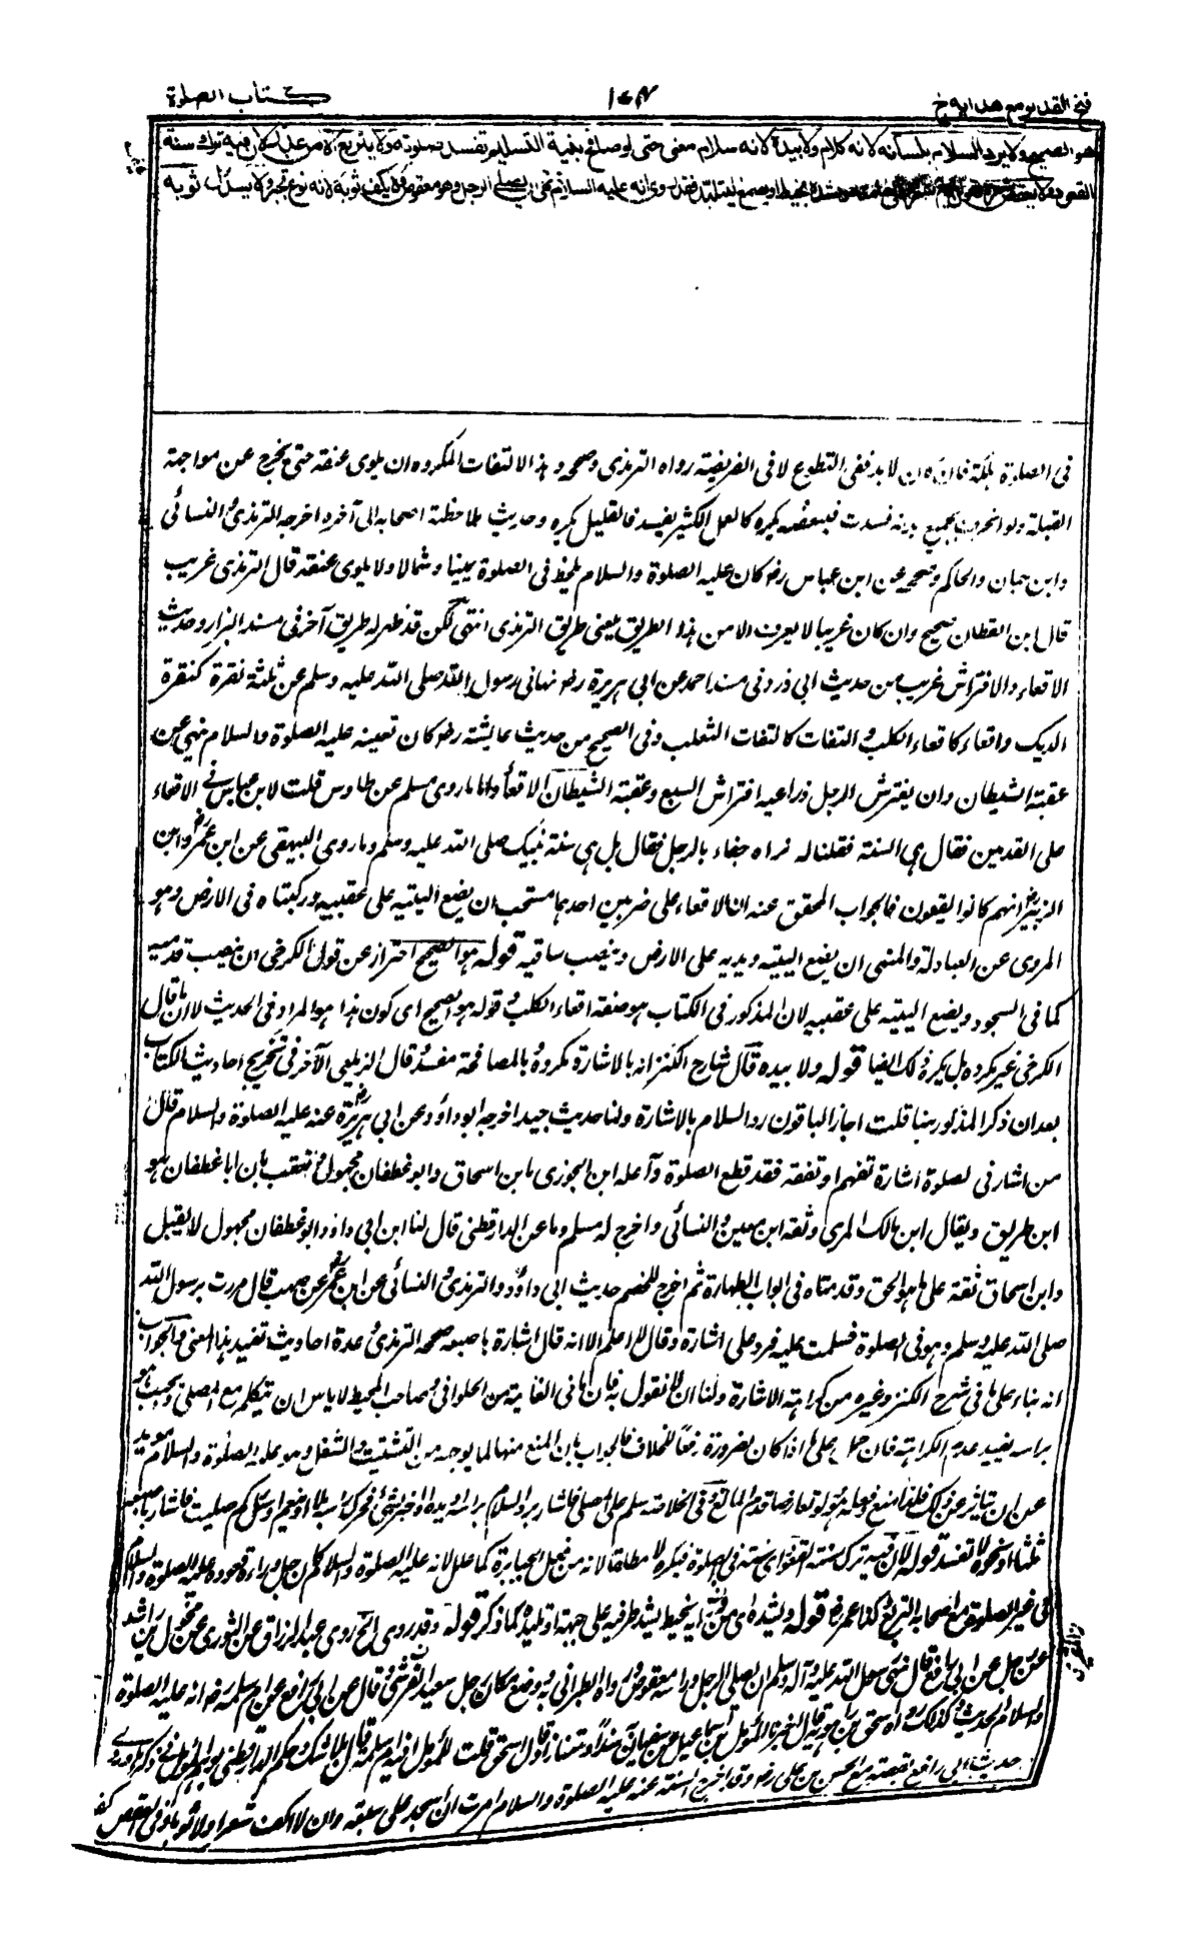 فتح القدير مع هدايه ج ١٧٤ كتاب الصلوة
هو الصحيح ولا يرد السلام بلسانه لانه كلام ولا بيده لانه سلام معنى حتى لو صافح بنية التسليم تفسد صلوته ولا يتربع الا من عذر لان فيه ترك سنة
القعود ولا يعقص شعره بخيط او بصمغ ليتلبد فقد روى انه عليه السلام نهى ان يصلى الرجل وهو معقوص ولا يكف ثوبه لانه نوع تجبر ولا يسدل ثوبه
فى الصلوة هلكة فان كان لا بد ففى التطوع لا فى الفريضة رواه الترمذى وصححه وهذا الالتفات المكروه ان يلوى عنقه حتى يخرج عن مواجهة
القبلة ولو انحرف بجميع بدنه فسدت فبعضه يكره كالعمل الكثير يفسد فالقليل يكره وحديث ملاحظته اصحابه الى آخره اخرجه الترمذى والنسائى
وابن حبان والحاكم وصححه عن ابن عباس رضـ كان عليه الصلوة والسلام يلحظ فى الصلوة يمينا وشمالا ولا يلوى عنقه قال الترمذى غريب
قال ابن القطان صحيح وان كان غريبا لا يعرف الا من هذا الطريق يعنى طريق الترمذى انتهى لكن قد ظهر له طريق آخر فى مسند البزار وحديث
الاقعاء والافتراش غريب من حديث ابى ذر وفى مسند احمد عن ابى هريرة رضـ نهانى رسول الله صلى الله عليه وسلم عن ثلثة نقرة كنقرة
الديك واقعاء كاقعاء الكلب والتفات كالتفات الثعلب وفى الصحيح من حديث عايشة رضـ كان تعينه عليه الصلوة والسلام نهى عن
عقبة الشيطان وان يفترش الرجل ذراعيه افتراش السبع وعقبة الشيطان الاقعاء واما ما روى مسلم عن طاوس قلت لابن عباس فى الاقعاء
على القدمين فقال هى السنة فقلنا له نراه جفاء بالرجل فقال بل هى سنة نبيك صلى الله عليه وسلم وما روى البيهقى عن ابن عمر وابن
الزبير انهم كانوا يقعون فالجواب المحقق عنه ان الاقعاء على ضربين احدهما مستحب ان يضع اليتيه على عقبيه وركبتاه فى الارض وهو
المروى عن العبادلة والمنهى ان يضع اليتيه ويديه على الارض وينصب ساقيه قوله هو الصحيح احتراز عن قول الكرخى ان ينصب قدميه
كما فى السجود ويضع اليتيه على عقبيه لان المذكور فى الكتاب هو صفة اقعاء الكلب قوله هو الصحيح اى كون هذا هو المراد فى الحديث لا ان ما قال
الكرخى غير مكروه بل يكره ذلك ايضا قوله ولا بيده قال شارح الكنز انه بالاشارة مكروه بالمصافحة مفسد قال الزيلعى الآخر فى تخريج احاديث الكتاب
بعد ان ذكر المذكور هنا قلت اجاز الباقون رد السلام بالاشارة ولنا حديث جيد اخرجه ابو داود عن ابى هريرة عنه عليه الصلوة والسلام قال
من اشار فى لصلوة اشارة تفهم او تفقه فقد قطع الصلوة واعله ابن الجوزى بابن اسحاق وابو غطفان مجهول وتعقب بان ابا غطفان هو
ابن طريق ويقال ابن مالك المرى وثقه ابن معين والنسائى واخرج له مسلم وما عن الدارقطنى قال لنا ابن ابى داود ابو غطفان مجهول لا يقبل
وابن اسحاق ثقة على ما هو الحق وقدمناه فى ابواب الطهارة ثم اخرج للخصم حديث ابى داود والترمذى والنسائى عن ابن عمر عن صهيب قال مررت برسول الله
صلى الله عليه وسلم وهو فى الصلوة فسلمت عليه فرد على اشارة وقال لا اعلم الا انه قال اشارة باصبعه صححه الترمذى وعدة احاديث تفيد هذا المعنى والجواب
انه بناء على ما فى شرح الكنز وغيره من كراهة الاشارة ولنا ان لا نقول به فان ما فى الغاية عن الحلوانى وصاحب المحيط لا باس ان يتكلم مع المصلى ويجيب هو
براسه يفيد عدم الكراهة فان حمل على ما اذا كان لضرورة رفعا للخلاف فالجواب بان المنع منها لما يوجب من التشتيت والشغل وهو عليه الصلوة والسلام مؤيد
عن ان يتاثر عن ذلك فلذا منع وفعله هو ولو تعارضا قدم المانع وفى الخلاصة سلم على المصلى فاشار برد السلام براسه او بيده او اخبر بشئ فحرك راسه بلا او نعم او سئل كم صليت فاشار باصبعه
ثلثا او نحوه لا تفسد قوله لان فيه ترك سنة القعود اى سنة فى الصلوة فيكره لا مطلقا لانه من فعل الجبابرة كما علل لانه عليه الصلوة والسلام كان جل قعوده عليه الصلوة والسلام
فى غير الصلوة مع اصحابه التربع وكذا عمر رضـ قوله
عن رجل عن ابى رافع قال نهى رسول الله صلى الله عليه وآله وسلم ان يصلى الرجل وراسه معقوص
حديث ابى رافع بقصته مع الحسن بن على رضـ وقد اخرج الستة عنه عليه الصلوة والسلام امرت ان اسجد على سبعة وان لا اكف شعرا ولا ثوبا وفى العقص كف